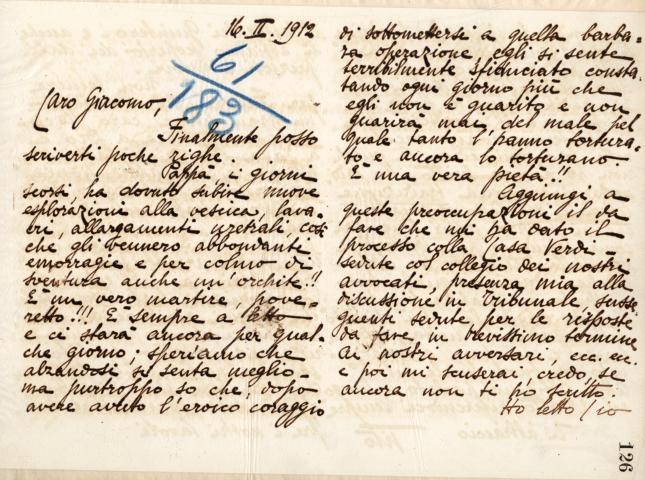 16. II. 1912
61
183
Caro Giacomo,
Finalmente posso
scriverti poche righe.
Pappà, i giorni
scorsi, ha dovuto subire nuove
esplorazioni alla vescica, lava-
cri, allargamenti uretrali, così
che gli vennero abbondanti
emorragie e per colmo di
sventura anche un'orchite!!
È un vero martire, pove-
retto!!! È sempre a letto
e ci starà ancora per qual-
che giorno; speriamo che
alzandosi si senta meglio-
ma purtroppo so che, dopo
avere avuto l'eroico coraggio
di sottomettersi a quella barba-
ra operazione, egli si sente
terribilmente sfiduciato consta-
tando ogni giorno più che
egli non è guarito e non
guarirà mai, del male pel
quale tanto l'hanno tortura-
to e ancora lo torturano.
È una vera pietà!!
Aggiungi a
queste preoccupazioni il da
fare che mi ha dato il
processo colla Casa Verdi-
sedute col collegio dei nostri
avvocati, presenza mia alla
discussione in tribunale, susse-
guenti sedute per le risposte
da fare, in brevissimo termine
ai nostri avversari, ecc. ecc.
e poi mi scuserai, credo, se
ancora non ti ho scritto.
Ho letto l'io
126